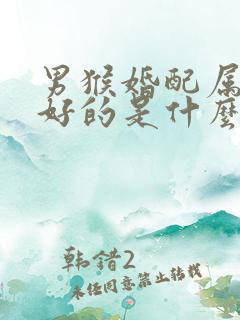 男猴婚配属
好的是什麽
韩错2
未经同意禁止转载